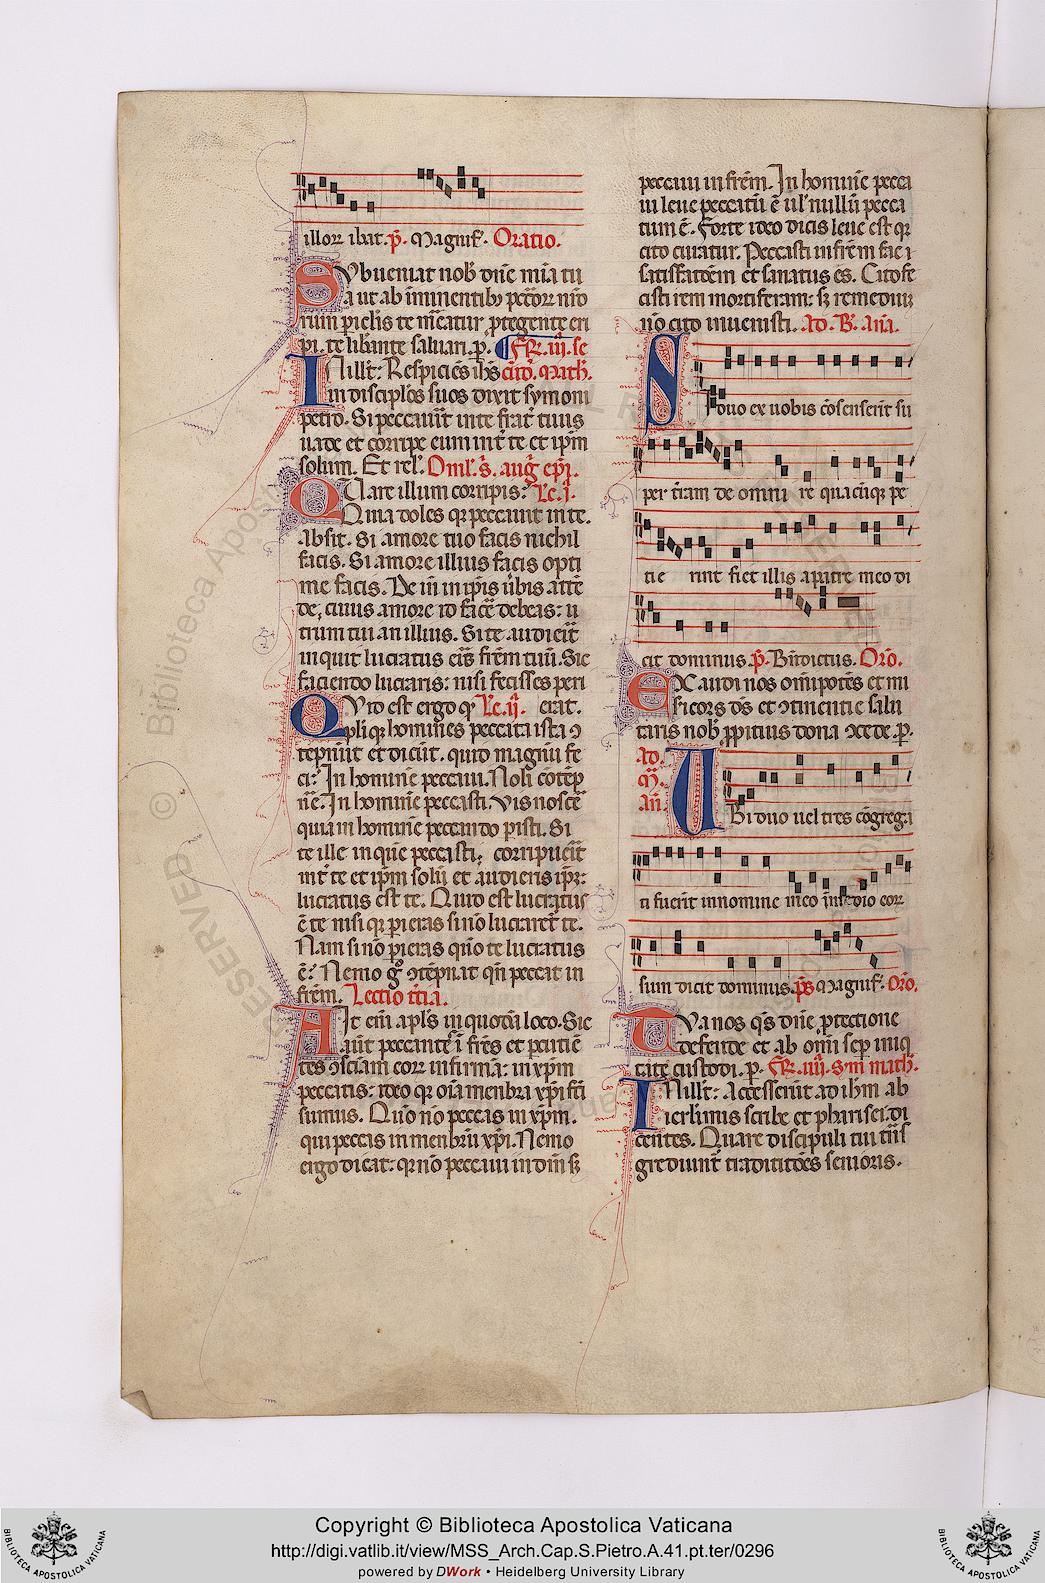 illoꝝ ibat. p̄. Magnif̄. Oratio.
SVbueniat nob̄ dn̄e mīa tu
a ut ab iminentibꝫ pc̄coꝝ nr̄o
rum piclis te mēatur ptegente eri
pi. te libante saluari. p̄. FR. iij. se
IN illt̄: Respicies ih̄s cū d̄. Math̄.
in discip̄los suos dixit symoni
petro. Si peccauit̄ in te frat̄ tuus
uade et corripe eum int̄ te et ip̄m
solum. Et rel̄. Oml̄. s̄. aug̃ ep̄i.
QVare illum corripis: Lc̄. j.
Quia doles qꝛ peccauit in te.
Absit. Si amore tuo facis nichil
facis. Si amore illius facis opti
me facis. De in in ip̄is ūbis atte
de, cuius amore id face debeas: u
trum tui an illius. Si te audierit̄
inquit lucratus eis frēm tuū. Sic
faciendo lucraris: nisi fecisses peri
QVid est ergo qꝫ Lc̄. ij. erat.
pliqꝫ homines peccata ista ꝯ
tepnūt et dicūt. quid magnū fe
ci? In homine peccaui. Noli cōtep
nē. In homine peccasti. Vis nosce
quia in homine peccando pisti. Si
te ille in que peccasti, corripuerit̄
int̄ te et ip̄m solū et audieris ip̄ꝫ:
lucratus est te. Quid est lucratus
ē te nisi qꝛ pieras sinō lucraret̄ te.
Nam si nō pieras quō te lucratus
ē? Nemo gͦ ꝯtepnat qn̄ peccat in
frēm. Lectio tc̄ia.
AIt em̄ apl̄s in quodā loco. Sic
aūt peccantes i fr̄es et pcutie
tes ꝯsciam eoꝝ infirmā: in xp̄m
peccatis: ideo qꝛ oīa menbra xp̄i fc̄i
sumus. Quō nō peccas in xp̄m.
qui peccas in menbrū xp̄i. Nemo
ergo dicat: qꝛ nō peccaui in dm̄ sꝫ
peccaui in frēm. In homine pecca
ui leue peccatū ē ul̄ nullū pecca
tum ē. Forte ideo dicis leue est qꝛ
cito curatur. Peccasti in frēm fac i
satisfactōem et sanatus es. Cito fe
cisti rem mortiferam: sꝫ remediuꝫ
nō cito inuenisti. Ad. B̄. an̄a.
SI duo ex uobis cōsenserit su
per t̄ram de omni re quacūqꝫ pe
tie rint fiet illis a patre meo di
cit dominus. p̄. Bn̄dictus. Orō.
EXaudi nos om̄ipotēs et mi
sericors ds̄ et ꝯtinentie salu
taris nob̄ ꝓpitius dona ꝯcede. p̄.
Ad.
M̄.
an̄
VBi duo uel tres cōgrega
ti fuerit in nomine meo in medio eoꝝ
sum dicit dominus. p̄s Magnif̄. Orō.
TVa nos qs̄ dn̄e ptectione
defende et ab om̄i sēp iniq
tate custodi. p̄. FR. iiij. s̄m math̄.
IN illt̄: Accesserūt ad ih̄m ab
ierlimis scribe et pharisei. di
centes. Quare discipuli tui tn̄s
gꝛediunt̄ traditiōes senioris.
Copyright © Biblioteca Apostolica Vaticana
http://digi.vatlib.it/view/MSS_Arch.Cap.S.Pietro.A.41.pt.ter/0296
powered by DWork • Heidelberg University Library